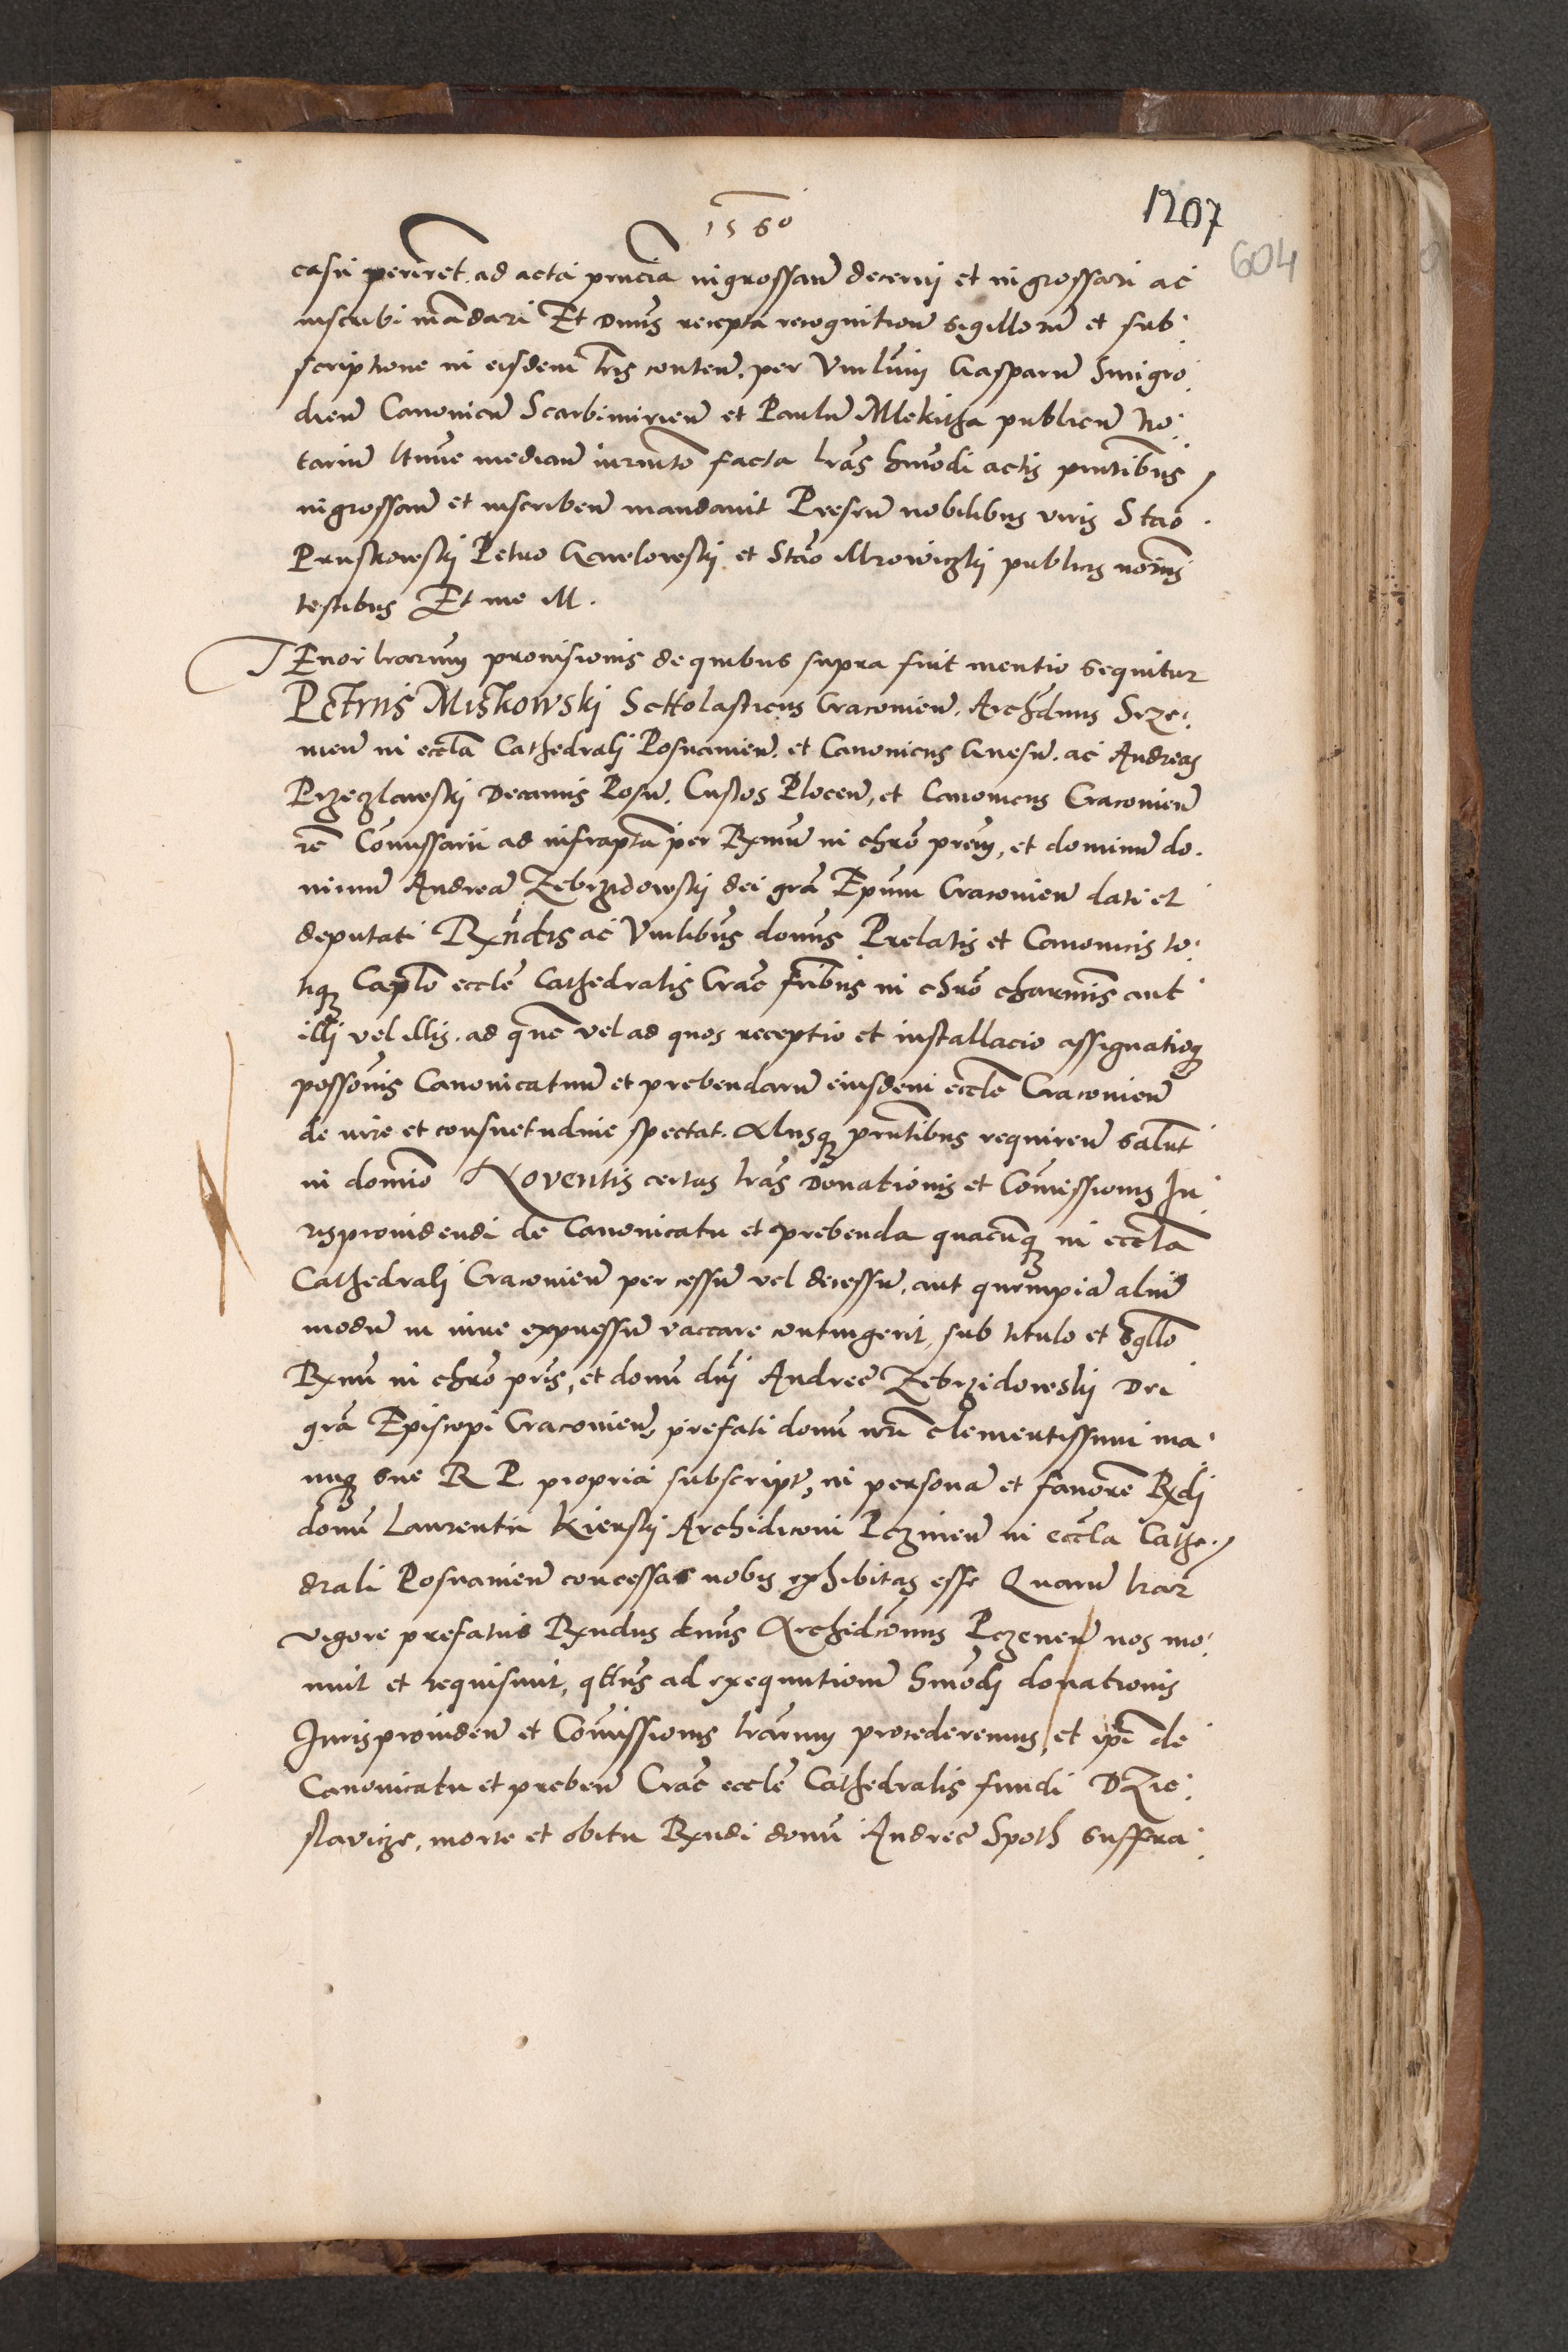 1560
1207
604
casu periret, ad acta prncia ingrossand decerni et ingrossari ac
inscribi mandari Et Dnus recepta recognitione sigillorum et sub:
scriptione in eisdem lris conten. per Venlem Gasparum Smigro:
dien Canonicum Scarbimirien et Paulum Mlekitha publicum No:
tarium median iuramto facta lras hmodi actis pntibus
ingrossand et inscribend mandavit Presen nobilibus viris Stao
Pruskowskij Petro Gawlowskij et Stao Mrowiczkij publicis notriis
testibus Et me M.
TEnor lrarum provisionis de quibus supra fuit mentio sequitur
PEtrus Miskowskj Scholasticus Cracovien. Archidnus Srze:
men in eccla Cathedralj Posnanien. et Canonicus Gnesn. ac Andreas
Przeczlawskij Decanus Posn. Custos Plocen, et Canonicus Cracovien
Comissarii ad infrapta per Rxmum in chro prem, et dominum do:
minum Andream Zebrzidowskij dei gra Epum Cracovien dati et
deputati Rxndis ac Venlibus domnis Prelatis et Canonicis to:
tiq Caplo eccle Cathedralis Crac fribus in chro charmis aut
illj vel illis. ad quem vel ad quos receptio et installacio assignatioq
possonis Canonicatuum et prebendarum eiusdem eccle Cracovien
de iure et consuetudine spectat. Aliisq pntibus requirend salutem
in domino Noveritis certas lras Donationis et Comissionis Ju:
risprovidendi de Canonicatu et prebenda quacunq in eccla
Cathedralj Cracovien per cessum vel decessum, aut quempiam alium
modum in iure expressum vaccare contingerit, sub titulo et sgllo
Rxmi in chro pris, et domni dni Andree Zebrzidowskij Dei
gra Episcopi Cracovien, prefati domni nri clementissimi ma:
nuq sue R P propria subscript, in personam et favorem Rxdj
domni Laurentii Kierskij Archidiconi Pczinien in eccla Cathe:
drali Posnanien concessas nobis exhibitas esse Quarum lrar
vigore prefatus Rxndus dnus Archidconus Pczenen nos mo:
nuit et requisivit, qtenus ad exequutionem hmodj donationis
Jurisproviden et Comissionis lrarum procederemus, et ipm de
Canonicatu et preben Crac eccle Cathedralis fundi DZie:
slavicze, morte et obitu Rxndi domni Andree Spoth suffra: